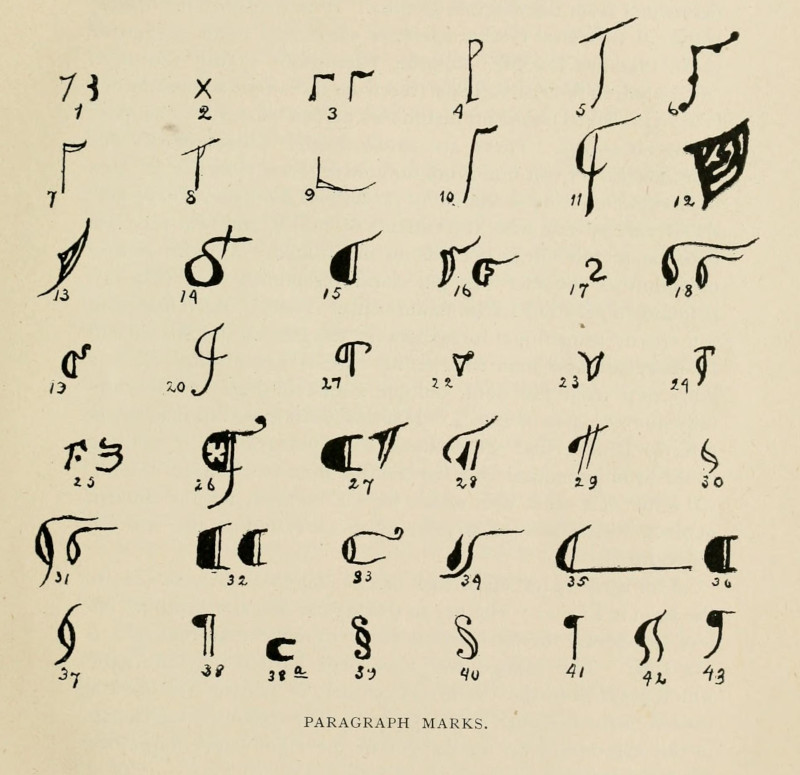 1 2 3 4 5 6
7 8 9 10 11 12
13 14 15 16 17 18
19 20 27 22 23 24
25 26 27 28 29 30
31 32 33 34 35 36
37 38 38 a 39 40 41 42 43
PARAGRAPH MARKS.